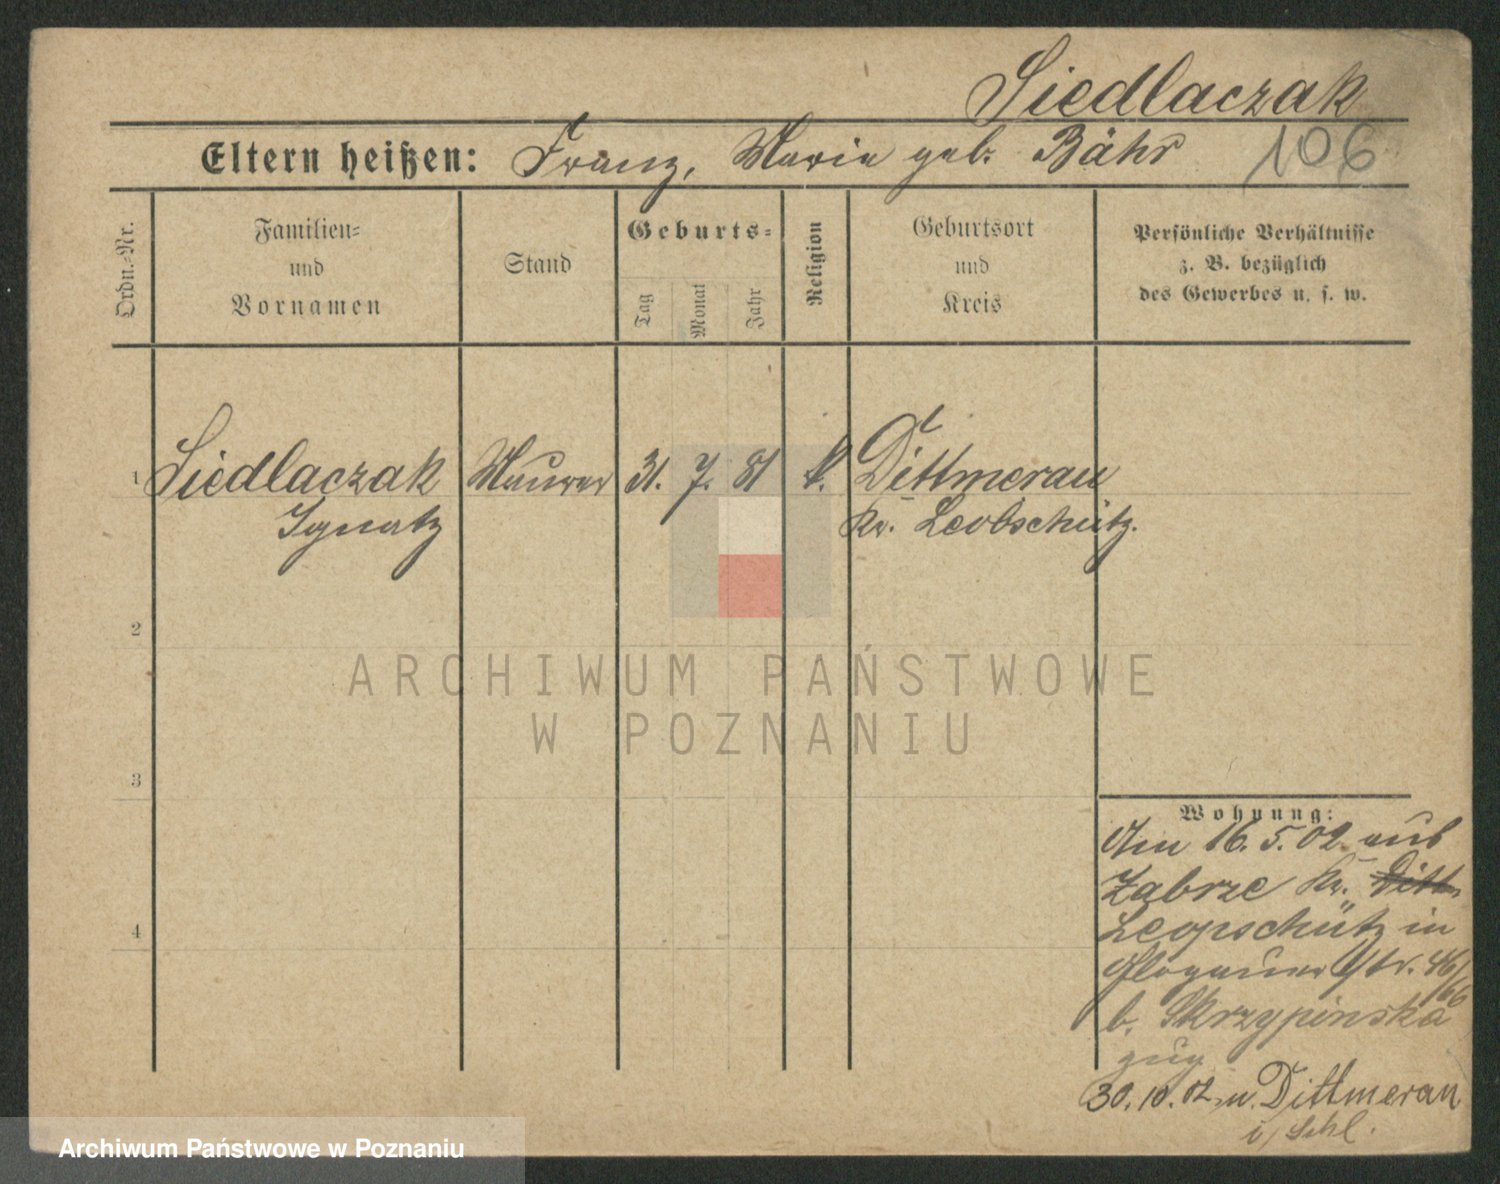 Siedlaczak
Eltern heißen: Franz, Marie geb. Bähr 106
Ordn.-Nr.
Familien-
und
Vornamen
Stand
Geburts-
Tag
Monat
Jahr
Religion
Geburtsort
und
Kreis
Persönliche Verhältnisse
z. B. bezüglich
des Gewerbes u. s. w.
1 Siedlaczak Maurer 31. 7. 81 k. Dittmerau
Ignatz Kr. Leobschütz.
2
3
4
Wohnung:
Am 16. 5. 02 aus
Zabrze Kr. Dittm
Leopschütz in
Glogauer Str. 46/66
b. Skrzypinska
zug
30. 10. 02 n. Dittmerau
i/Schl.
ARCHIWUM PAŃSTWOWE
W POZNANIU
Archiwum Państwowe w Poznaniu